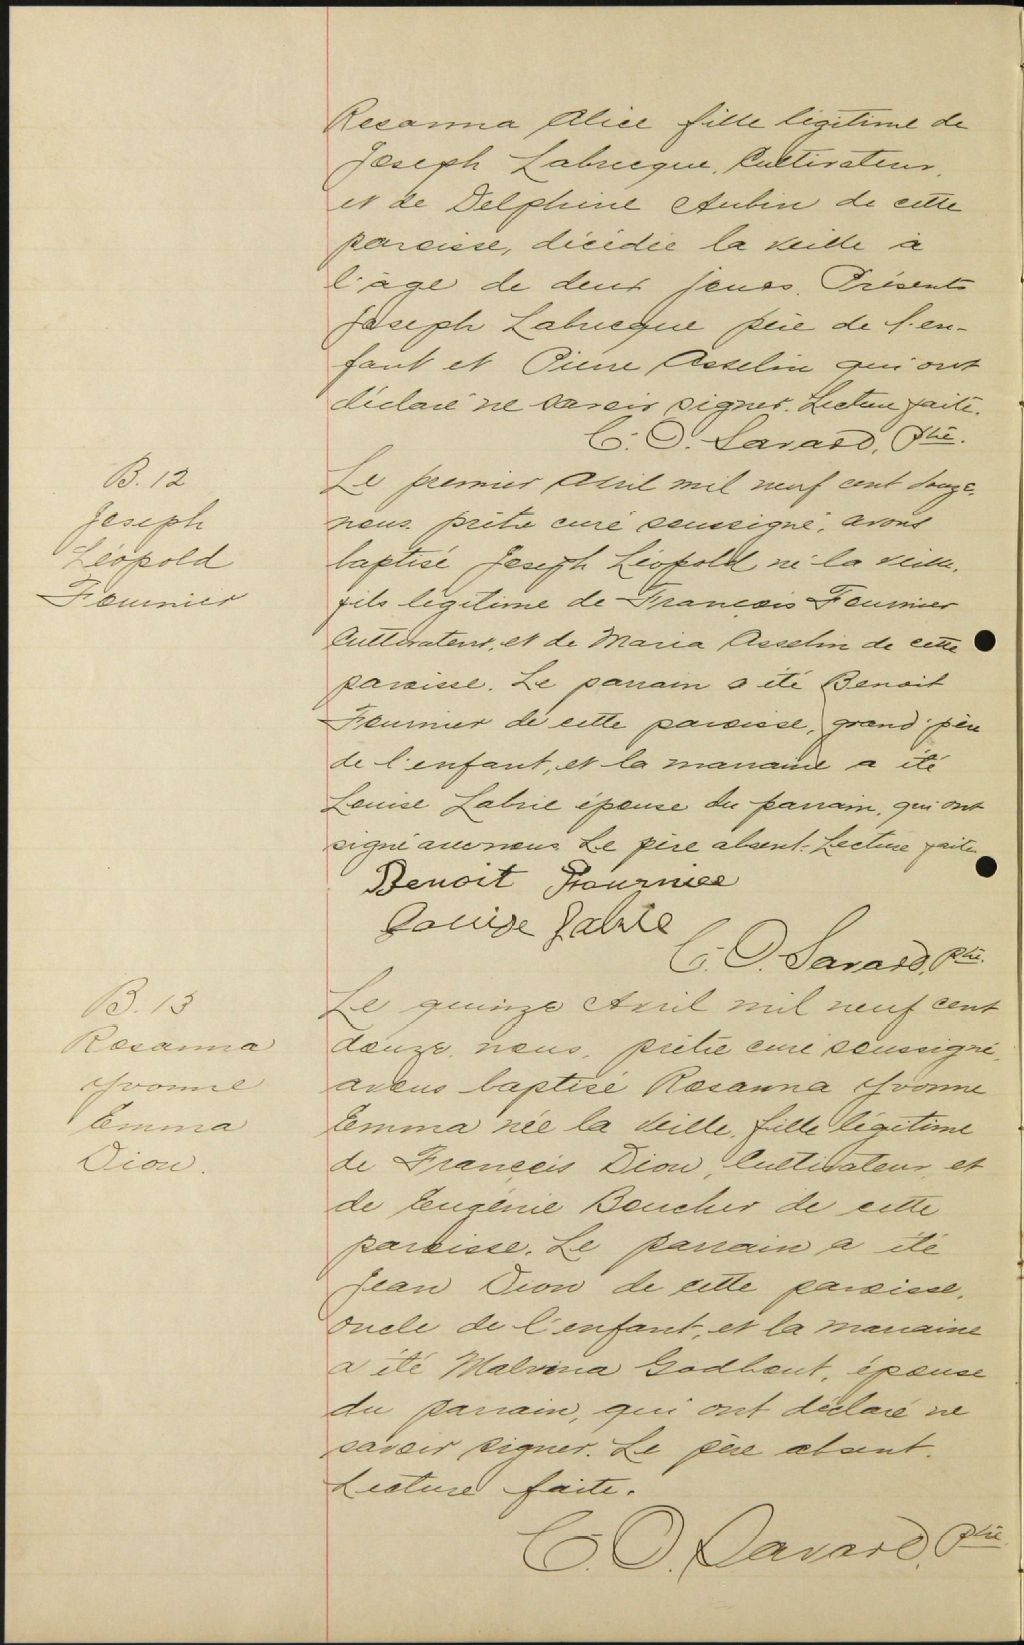 Rosanna Alice fille légitime de
Joseph Labrecque, Cultivateur,
et de Delphine Aubin de cette
paroisse, décédée la veille à
l'âge de deux jours. Présents
Joseph Labrecque père de l'en-
fant et Pierre Asselin qui ont
déclaré ne savoir signer. Lecture faite.
C. O. Savard, Ptre.
B. 12
Joseph
Léopold
Fournier
Le premier Avril mil neuf cent douze,
nous prêtre curé soussigné, avons
baptisé Joseph Léopold né la veille,
fils légitime de François Fournier
Cultivateur, et de Maria Asselin de cette
paroisse. Le parrain a été Benoit
Fournier de cette paroisse, grand-père
de l'enfant, et la marraine a été
Louise Labrie épouse du parrain, qui ont
signé avec nous. Le père absent. Lecture faite
Benoit Fournier
Louise Labrie
C. O. Savard, Ptre.
B. 13
Rosanna
Yvonne
Emma
Dion.
Le quinze Avril mil neuf cent
douze, nous, prêtre curé soussigné,
avons baptisé Rosanna Yvonne
Emma née la veille, fille légitime
de François Dion, Cultivateur, et
de Eugénie Boucher de cette
paroisse. Le parrain a été
Jean Dion de cette paroisse,
oncle de l'enfant, et la marraine
a été Malvina Godbout, épouse
du parrain, qui ont déclaré ne
savoir signer. Le père absent.
Lecture faite.
C. O. Savard, Ptre.